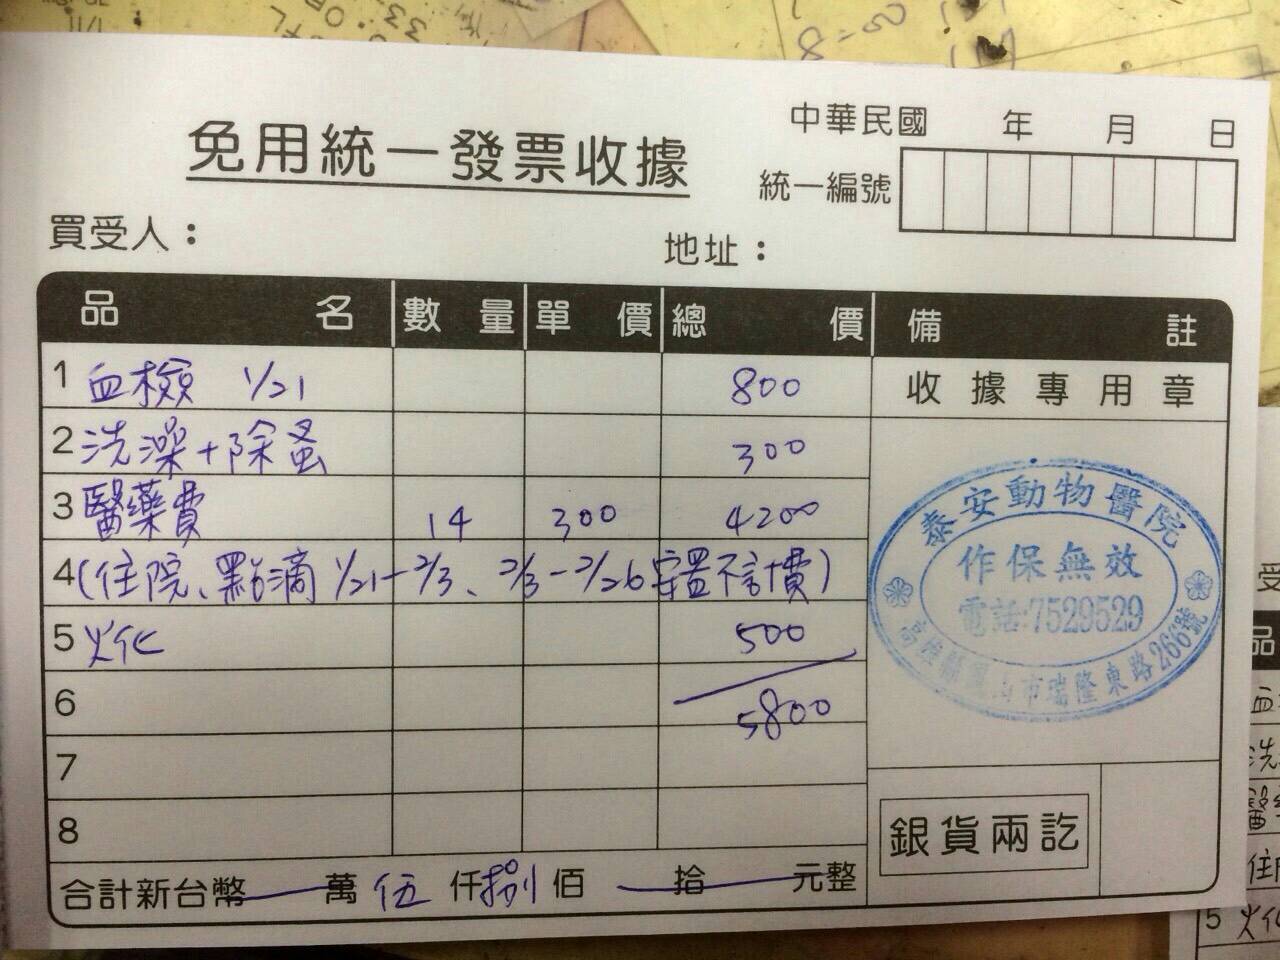 中華民國 年 月 日
免用統一發票收據
統一編號
買受人：
地址：
品名 數量 單價 總價 備註
1 血檢 1/21 800
收據專用章
2 洗澡+除蚤 300
3 醫藥費 14 300 4200
4 (住院、點滴 1/21-2/3、2/3-2/26安置不計費)
5 火化 500
6 5800
7
8
泰安動物醫院
作保無效
電話:7529529
高雄縣鳳山市瑞隆東路266號
銀貨兩訖
合計新台幣 萬 伍 仟 捌 佰 拾 元整
受
品
血
洗
醫
住
5 火化